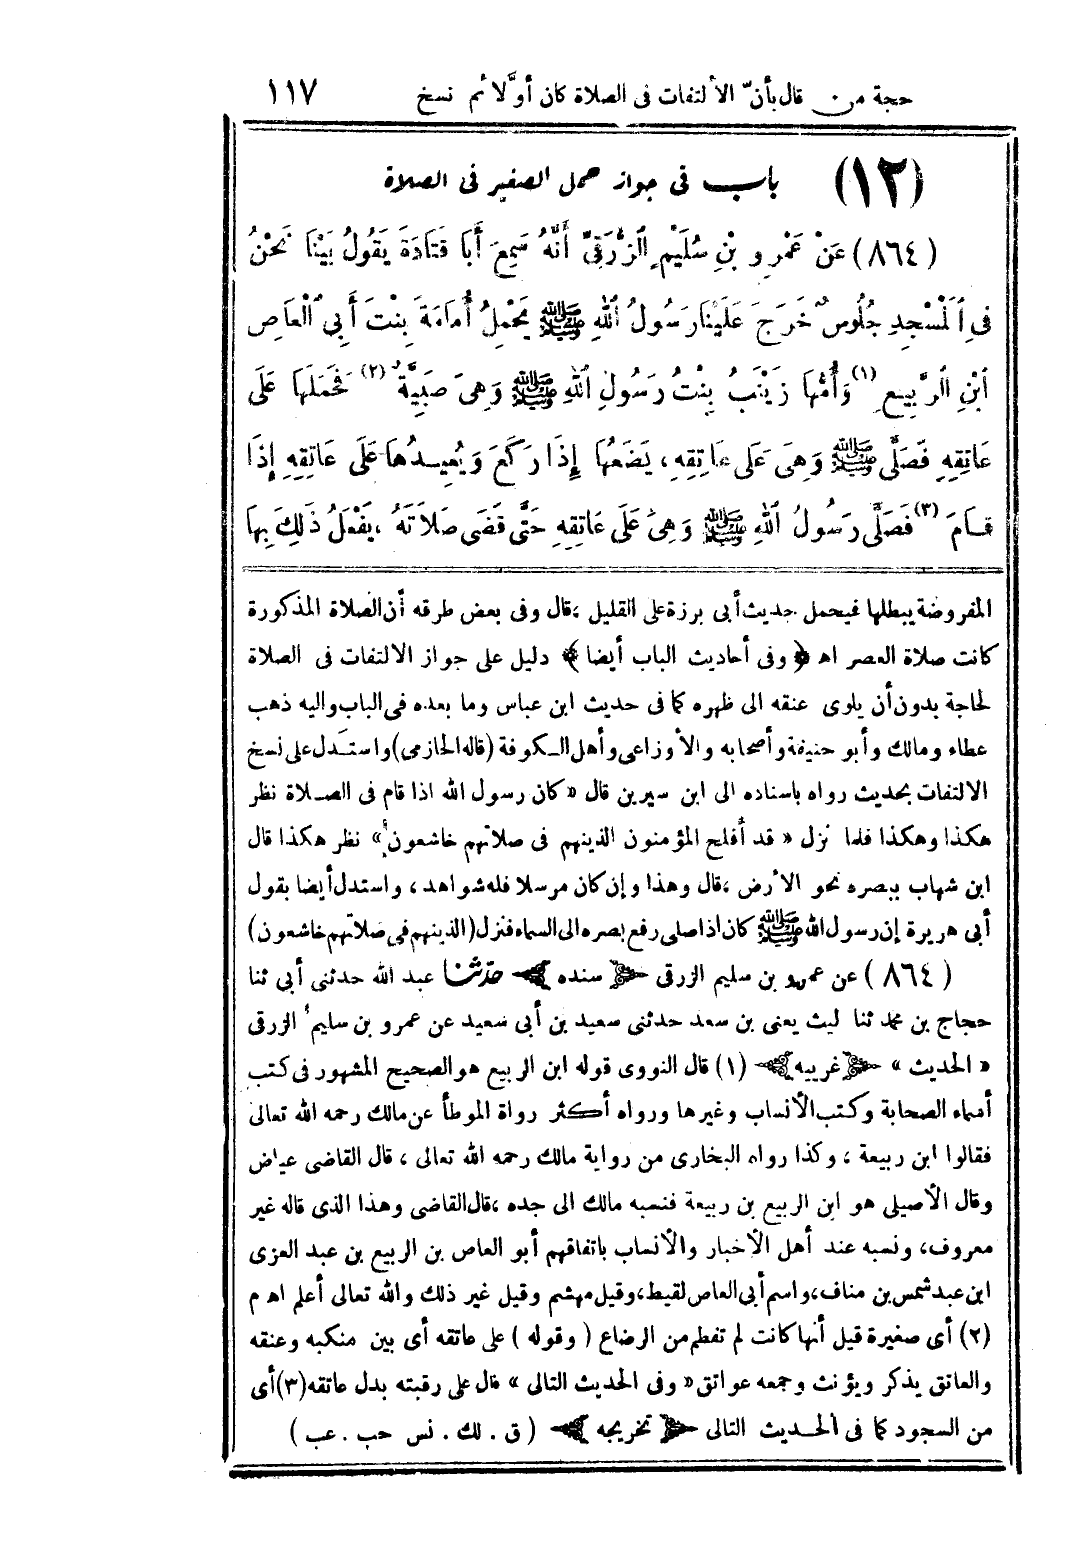 حجة من قال بأنّ الألتفات فى الصلاة كان أوَّلا ثم نسخ ١١٧
(١٢) باب فى جواز حمل الصغير فى الصلاة
(٨٦٤) عَنْ عَمْرِو بْنِ سُلَيْمٍ الزُّرَقِىِّ أَنَّهُ سَمِعَ أَبَا قَتَادَةَ يَقُولُ بَيْنَا نَحْنُ
فِى الْمَسْجِدِ جُلُوسٌ خَرَجَ عَلَيْنَا رَسُولُ اللهِ ﷺ يَحْمِلُ أُمَامَةَ بِنْتَ أَبِي الْعَاصِ
ابْنِ الرَّبِيعِ (١) وَأُمُّهَا زَيْنَبُ بِنْتُ رَسُولِ اللهِ ﷺ وَهِىَ صَبِيَّةٌ (٢) فَحَمَلَهَا عَلَى
عَاتِقِهِ فَصَلَّى ﷺ وَهِىَ عَلَى عَاتِقِهِ، يَضَعُهَا إِذَا رَكَعَ وَيُعِيدُهَا عَلَى عَاتِقِهِ إِذَا
قَامَ (٣) فَصَلَّى رَسُولُ اللهِ ﷺ وَهِىَ عَلَى عَاتِقِهِ حَتَّى قَضَى صَلَاتَهُ، يَفْعَلُ ذَلِكَ بِهَا
المفروضة يبطلها فيحمل حديث أبى برزة على القليل، قال وفى بعض طرقه أن الصلاة المذكورة
كانت صلاة العصر اهـ ﴿ وفى أحاديث الباب أيضا ﴾ دليل على جواز الالتفات فى الصلاة
لحاجة بدون أن يلوى عنقه الى ظهره كما فى حديث ابن عباس وما بعده فى الباب واليه ذهب
عطاء ومالك وأبو حنيفة وأصحابه والأوزاعى وأهل الكوفة (قاله الحازمى) واستدل على نسخ
الالتفات بحديث رواه باسناده الى ابن سيرين قال « كان رسول الله اذا قام فى الصلاة نظر
هكذا وهكذا فلما نزل « قد أفلح المؤمنون الذين هم فى صلاتهم خاشعون» نظر هكذا قال
ابن شهاب ببصره نحو الأرض، قال وهذا وإن كان مرسلا فله شواهد، واستدل أيضا بقول
أبى هريرة إن رسول الله ﷺ كان اذا صلى رفع بصره الى السماء فنزل (الذين هم فى صلاتهم خاشعون)
(٨٦٤) عن عمرو بن سليم الزرقى ﴿ سنده ﴾ حدّثنا عبد الله حدثنى أبي ثنا
حجاج بن محمد ثنا ليث يعنى بن سعد حدثنى سعيد بن أبي سعيد عن عمرو بن سليم الزرقى
« الحديث » ﴿ غريبه ﴾ (١) قال النووى قوله ابن الربيع هو الصحيح المشهور فى كتب
أسماء الصحابة وكتب الأنساب وغيرها ورواه أكثر رواة الموطأ عن مالك رحمه الله تعالى
فقالوا ابن ربيعة، وكذا رواه البخارى من رواية مالك رحمه الله تعالى، قال القاضى عياض
وقال الأصيلى هو ابن الربيع بن ربيعة فنسبه مالك الى جده، قال القاضى وهذا الذى قاله غير
معروف، ونسبه عند أهل الأخبار والأنساب باتفاقهم أبو العاص بن الربيع بن عبد العزى
ابن عبد شمس بن مناف، واسم أبى العاص لقيط، وقيل مهشم وقيل غير ذلك والله تعالى أعلم اهـ م
(٢) أى صغيرة قيل أنها كانت لم تفطم من الرضاع (وقوله) على عاتقه أى بين منكبه وعنقه
والعاتق يذكر ويؤنث وجمعه عواتق « وفى الحديث التالى » قال على رقبته بدل عاتقه (٣) أى
من السجود كما فى الحديث التالى ﴿ تخريجه ﴾ (ق . لك . نس حب . عب)